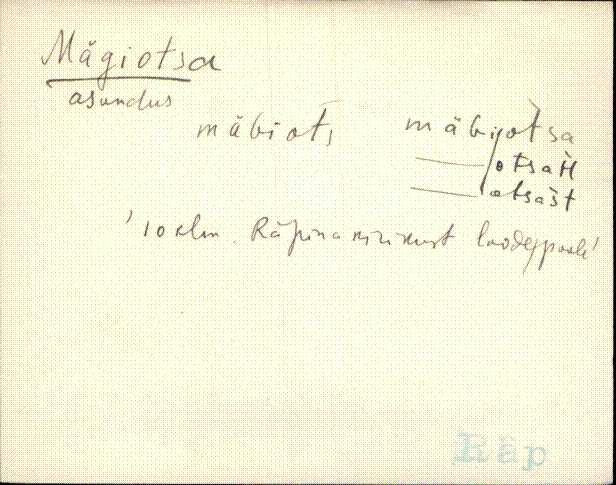 Mägiotsa
asundus
mäɢiots, mäɢijotsa
— otsaH
— otsast
' 10 klm. Räpina kirikust loodepoole'
Räp